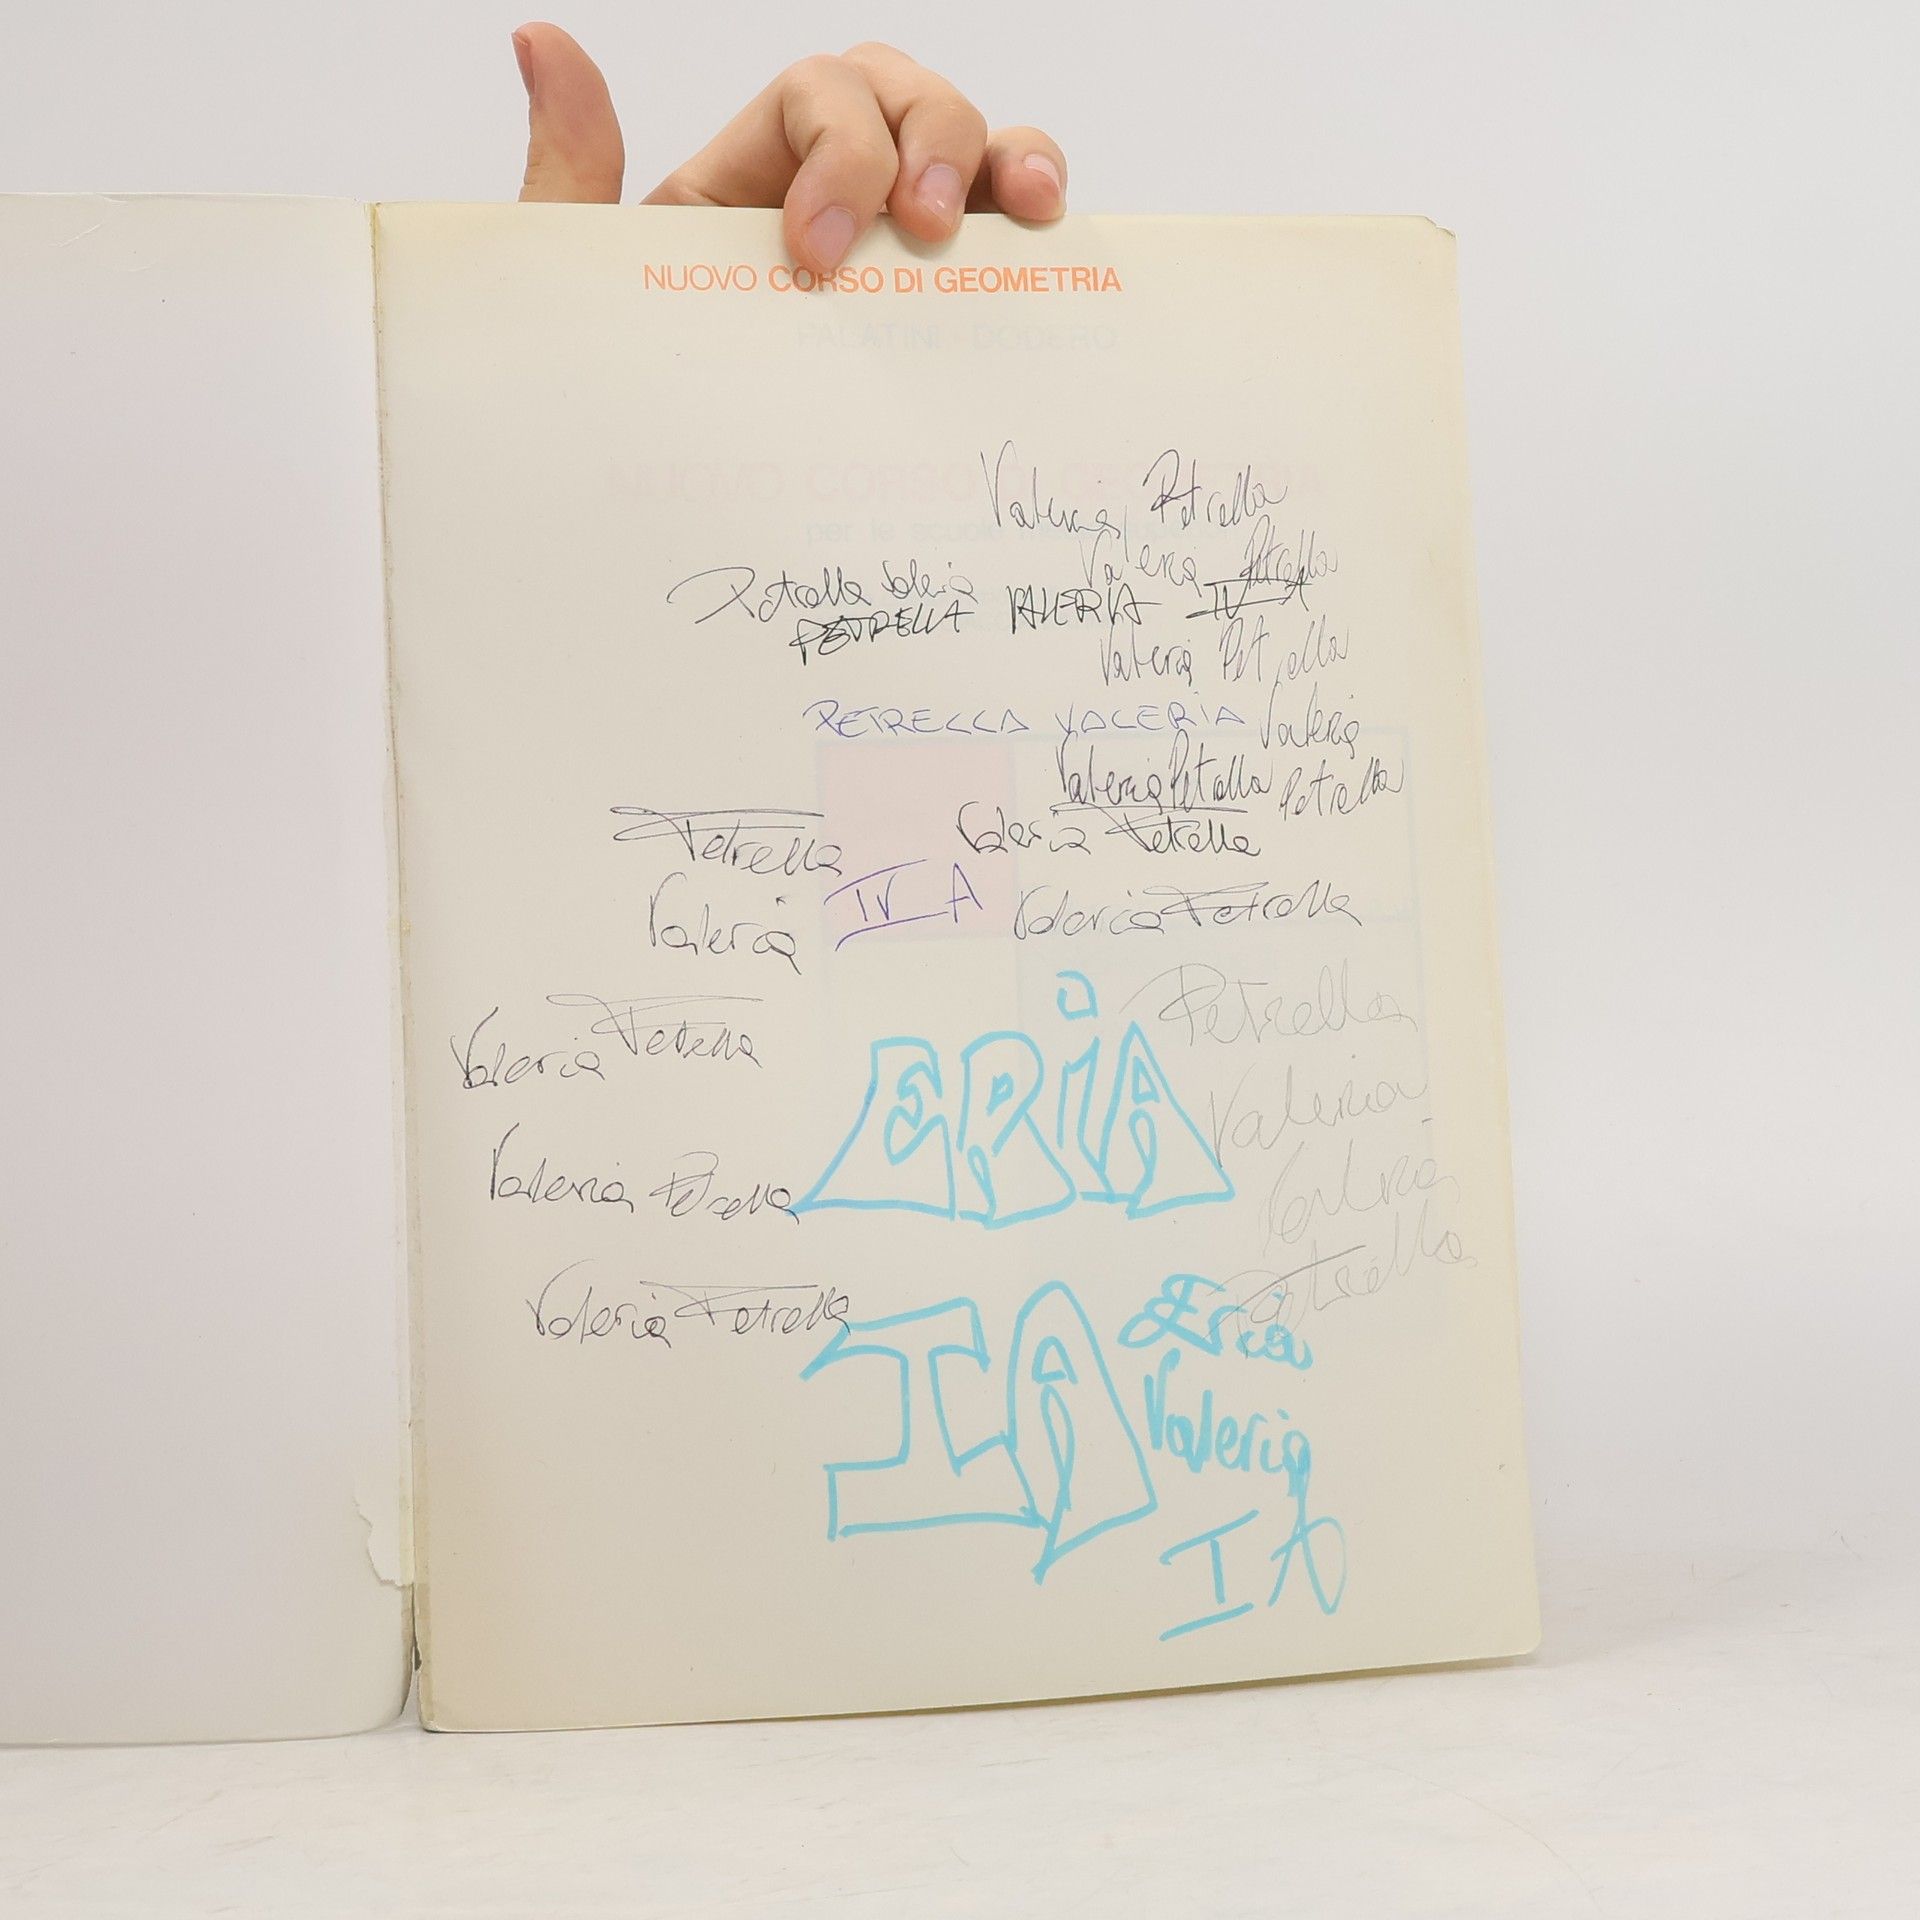 NUOVO CORSO DI GEOMETRIA
PALATINI - DODERO
NUOVO CORSO DI GEOMETRIA
per le scuole medie superiori
Valeria Petrella
Valeria Petrella
Petrella Valeria
PETRELLA VALERIA IV A
Valeria Petrella
PETRELLA VALERIA Valeria
Valeria Petrella Petrella
Petrella Valeria Petrella
Valeria IV A Valeria Petrella
Petrella
Valeria Petrella
ERiA
Valeria
Valeria Petrella
Valeria
Petrella
Valeria Petrella
IA
Erica
Valeria
I A